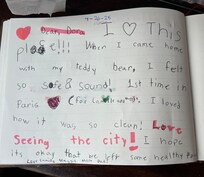 4-26-25
I ♡ This
place!!! When I came home
with my teddy bear, I felt
so safe & sound! 1st time in
Paris (For I loved
how it was so clean! Love
Seeing the city! I hope
its okay that we left some healthy